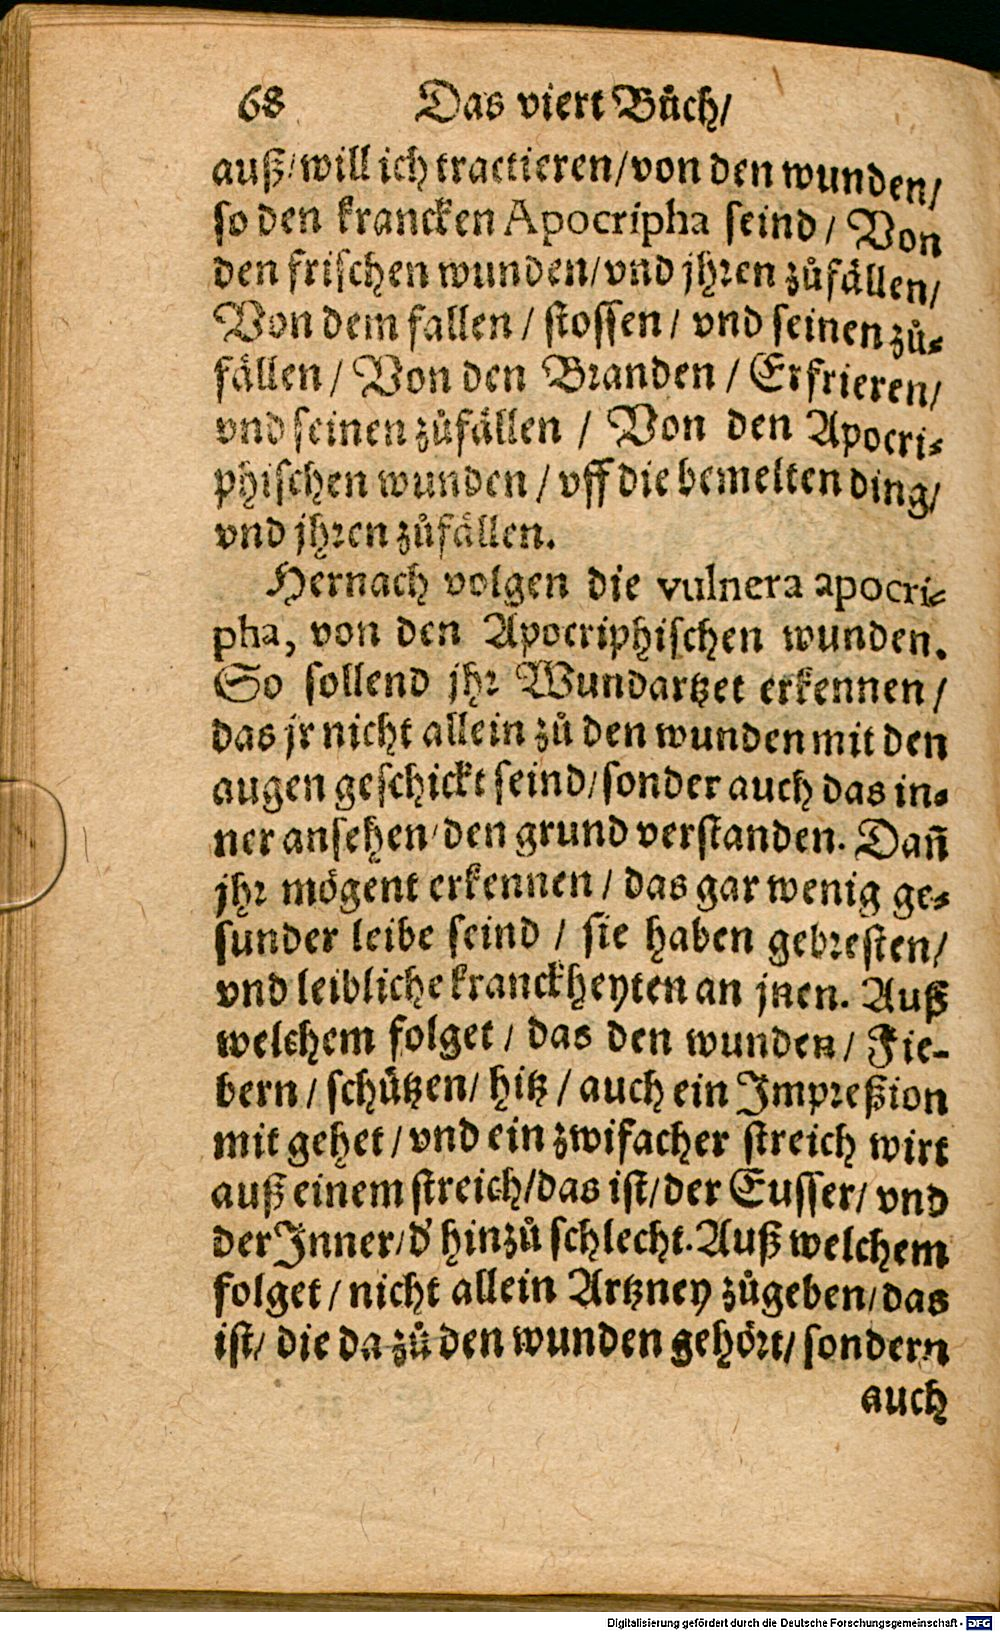 68 Das viert Bůch/
auß/will ich tractieren/von den wunden/
so den krancken Apocripha seind / Von
den frischen wunden/vnd jhren zůfällen/
Von dem fallen / stossen / vnd seinen zů-
fällen / Von den Branden / Erfrieren/
vnd seinen zůfällen / Von den Apocri-
phischen wunden / vff die bemelten ding/
vnd jhren zůfällen.
Hernach volgen die vulnera apocri-
pha, von den Apocriphischen wunden.
So sollend jhr Wundartzet erkennen /
das jr nicht allein zů den wunden mit den
augen geschickt seind/sonder auch das in-
ner ansehen/den grund verstanden. Dañ
jhr mögent erkennen / das gar wenig ge-
sunder leibe seind / sie haben gebresten/
vnd leibliche kranckheyten an jnen. Auß
welchem folget / das den wunden / Fie-
bern / schützen/ hitz / auch ein Impreßion
mit gehet / vnd ein zwifacher streich wirt
auß einem streich/das ist/der Eusser/ vnd
der Inner/d' hinzů schlecht. Auß welchem
folget / nicht allein Artzney zůgeben/das
ist/ die da zů den wunden gehört/ sondern
auch
Digitalisierung gefördert durch die Deutsche Forschungsgemeinschaft - DFG